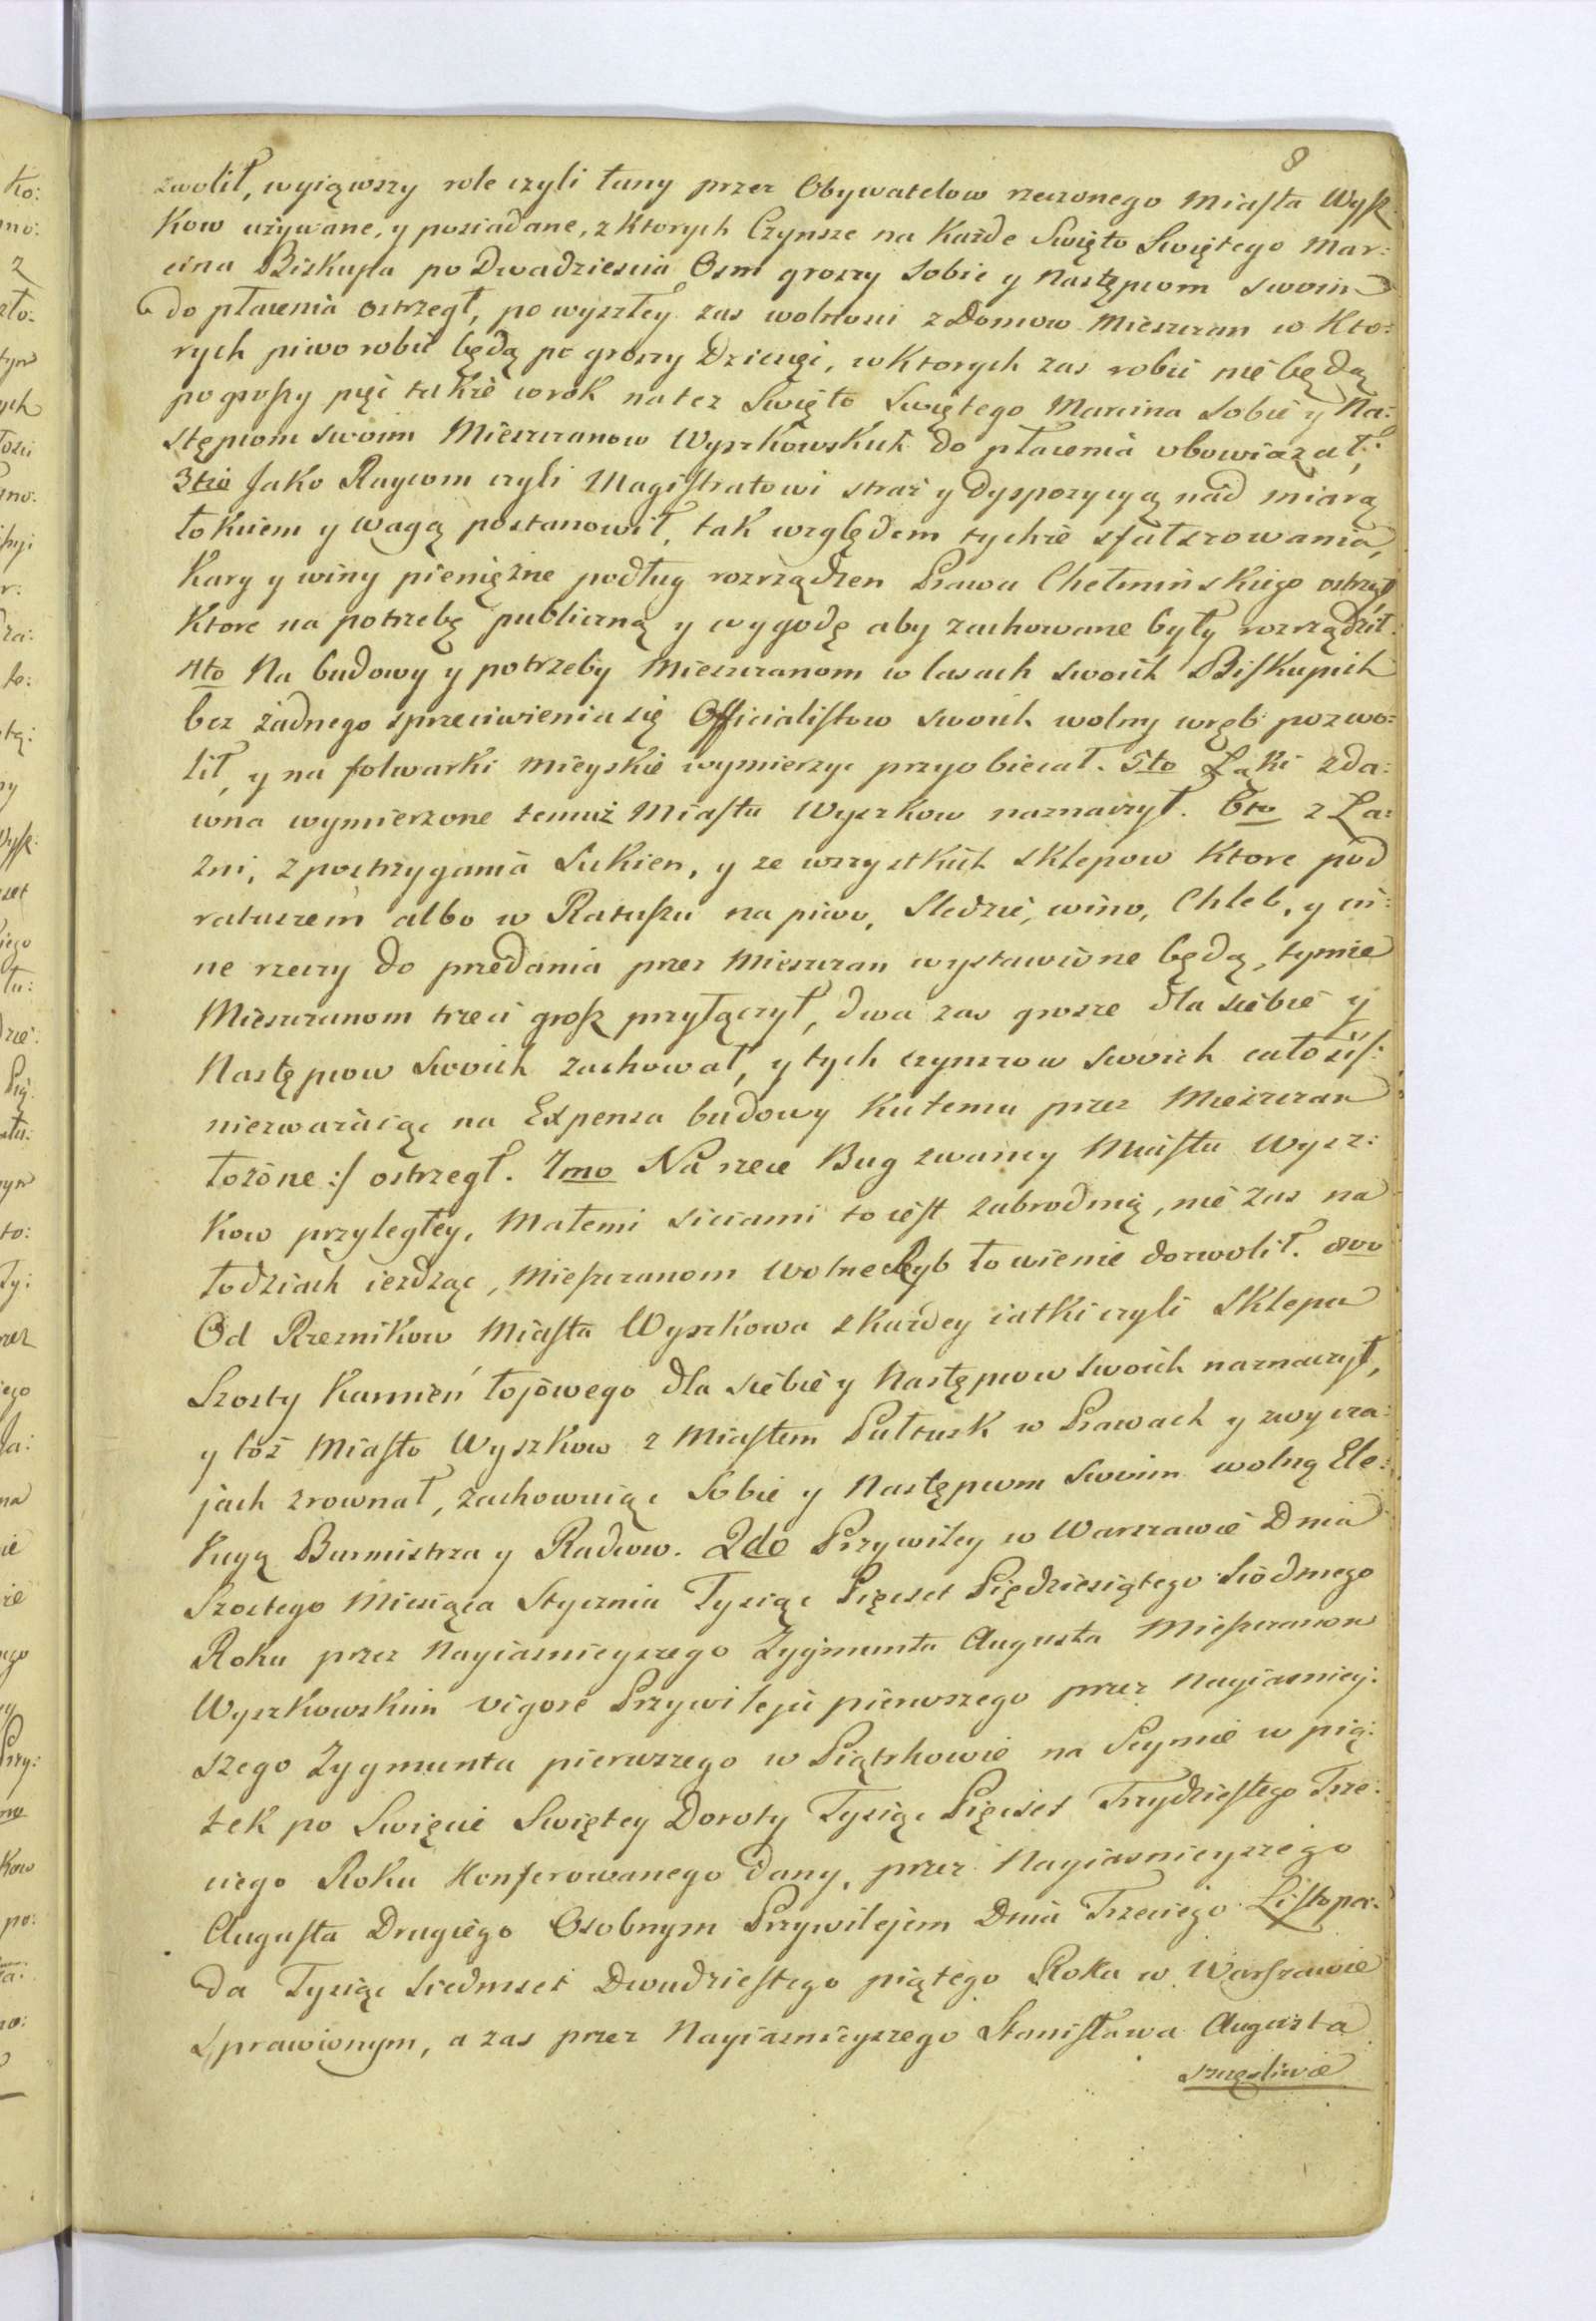 8
zwolił, wyiąwszy role czyli łany przez Obywatelow rzeczonego Miasta Wysz:
Kow używane, y posiadane, z Ktorych Czynsze na Każde Swięto Swiętego Mar:
cina Biskupa po Dwadziescia Osm groszy Sobie y Następcom swoim
do płacenia ostrzegł, po wyszłey zas wolnosci z Domow Mieszczan w Kto:
rych piwo robić będą po groszy Dziewięć, w Ktorych zas robić nie będą
po groszy pięć także co rok na tez Swięto Swiętego Marcina Sobie y Na:
stępcom swoim Mieszczanow Wyszkowskich do płacenia obowiązał;
3tio Jako Raycom czyli Magistratowi straż y Dyspozycyą nad miarą
łokciem y wagą postanowił, tak względem tychże sfałszowania,
Kary y winy pieniężne podług rozrządzen Prawa Chełmińskiego ostrzegł
Ktore na potrzebę publiczną y wygodę aby zachowane były rozrządził.
4to Na budowy y potrzeby Mieszczanom w lasach swoich Biskupich
bez żadnego sprzeciwienia się Officialistow swoich wolny wręb pozwo:
lił, y na folwarki mieyskie wymierzyc przyobiecał. 5to Łąki zda:
wna wymierzone temuż Miastu Wyszkow naznaczył. 6to z Ła:
zni, z postrzygania Sukien, y ze wszystkich sklepow Ktore pod
ratuszem albo w Ratuszu na piwo, Sledzie, wino, Chleb, y in:
ne rzeczy do przedania przez Mieszczan wystawione będą, tymże
Mieszczanom trzeci grosz przyłączył, dwa zas grosze dla siebie y
Następcow Swoich zachował, y tych czynszow swoich całosć /:
niezważaiąc na Expensa budowy Kutemu przez Mieszczan
łożone :/ ostrzegł. 7mo Na rzece Bug zwaney Miastu Wysz:
Kow przyległey, Małemi Sieciami to iest zabrodnią, nie zas na
łodziach iezdząc, Mieszczanom wolne Ryb łowienie dozwolił. 8vo
Od Rzeznikow Miasta Wyszkowa z każdey iatki czyli Sklepu
Szosty Kamień łojowego dla siebie y Następcow Swoich naznaczył,
y toż Miasto Wyszkow z Miastem Pułtusk w Prawach y zwycza:
jach zrownał, zachowuiąc Sobie y Następcom Swoim wolną Ele:
kcyą Burmistrza y Radcow. 2do Przywiley w Warszawie Dnia
Szostego Miesiąca Stycznia Tysiąc Pięcset Piędziesiątego Siodmego
Roku przez Nayiasnieyszego Zygmunta Augusta Mieszczanom
Wyszkowskim vigore Przywileju pierwszego przez Nayiasniey:
szego Zygmunta pierwszego w Piątrkowie na Seymie w pią:
tek po Swięcie Swiętey Doroty Tysiąc Pięcset Trzydziestego Trze:
ciego Roku Konferowanego dany, przez Nayiasnieyszego
Augusta Drugiego Osobnym Przywilejem Dnia Trzeciego Listopa:
da Tysiąc Siedmset Dwudziestego piątego Roku w Warszawie
sprawionym, a zas przez Nayiasnieyszego Stanisława Augusta
szczęsliwie